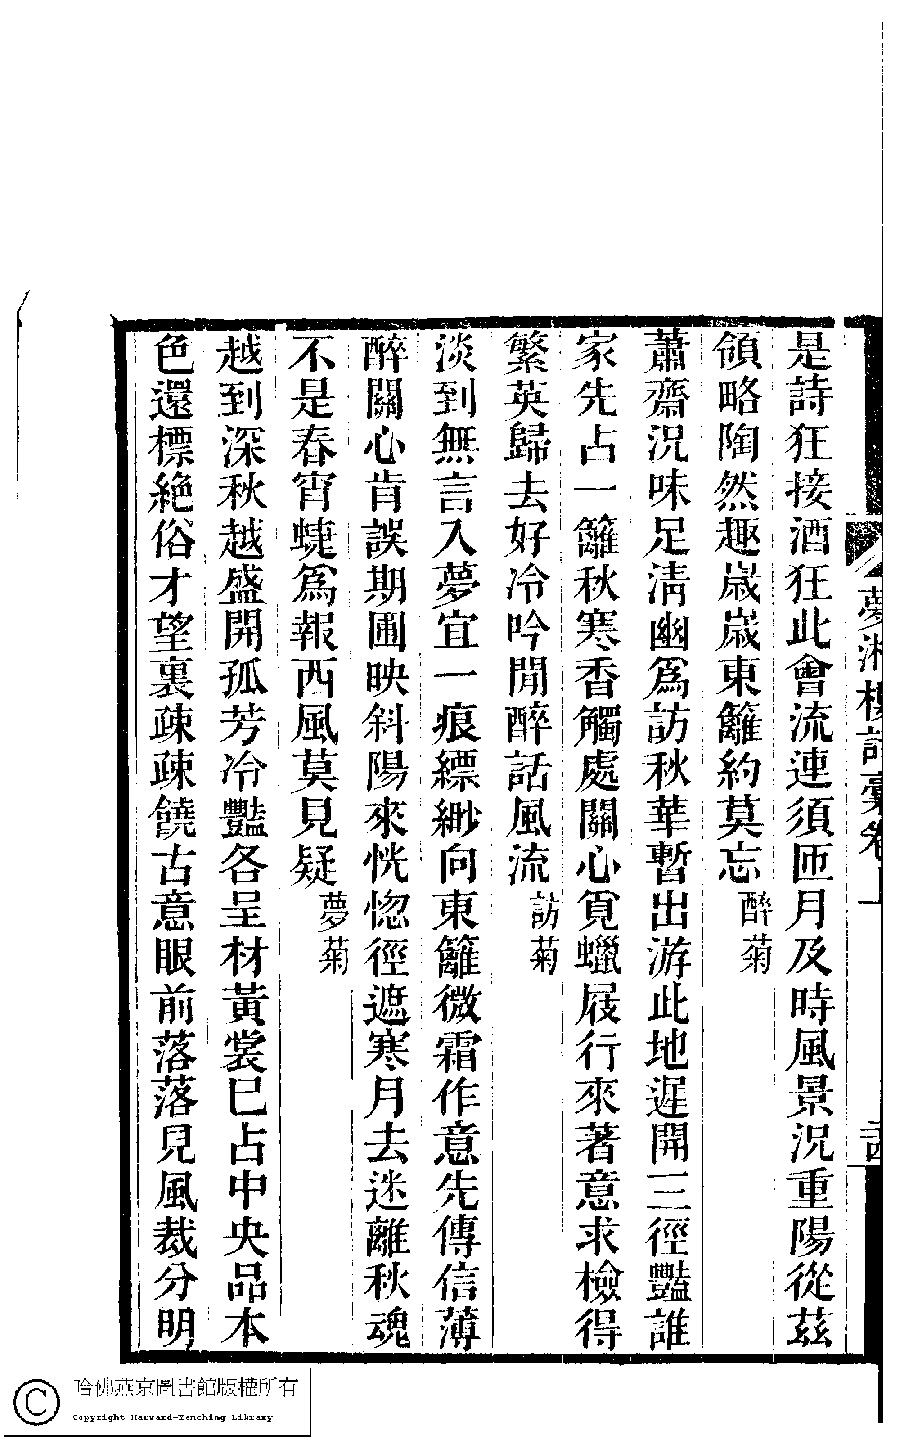 夢湘樓詩稾卷上
是詩狂接酒狂此會流連須匝月及時風景況重陽從茲
領略陶然趣歲歲東籬約莫忘 醉菊
蕭齋況味足清幽爲訪秋華暫出游此地遲開三徑豔誰
家先占一籬秋寒香觸處關心覓蠟屐行來著意求檢得
繁英歸去好冷吟閒醉話風流 訪菊
淡到無言入夢宜一痕縹緲向東籬微霜作意先傳信薄
醉關心肯誤期圃映斜陽來恍惚徑遮寒月去迷離秋魂
不是春宵蜨爲報西風莫見疑 夢菊
越到深秋越盛開孤芳冷豔各呈材黃裳巳占中央品本
色還標絶俗才望裏疎疎饒古意眼前落落見風裁分明
哈佛燕京圖書館版權所有
Copyright Harvard-Yenching Library